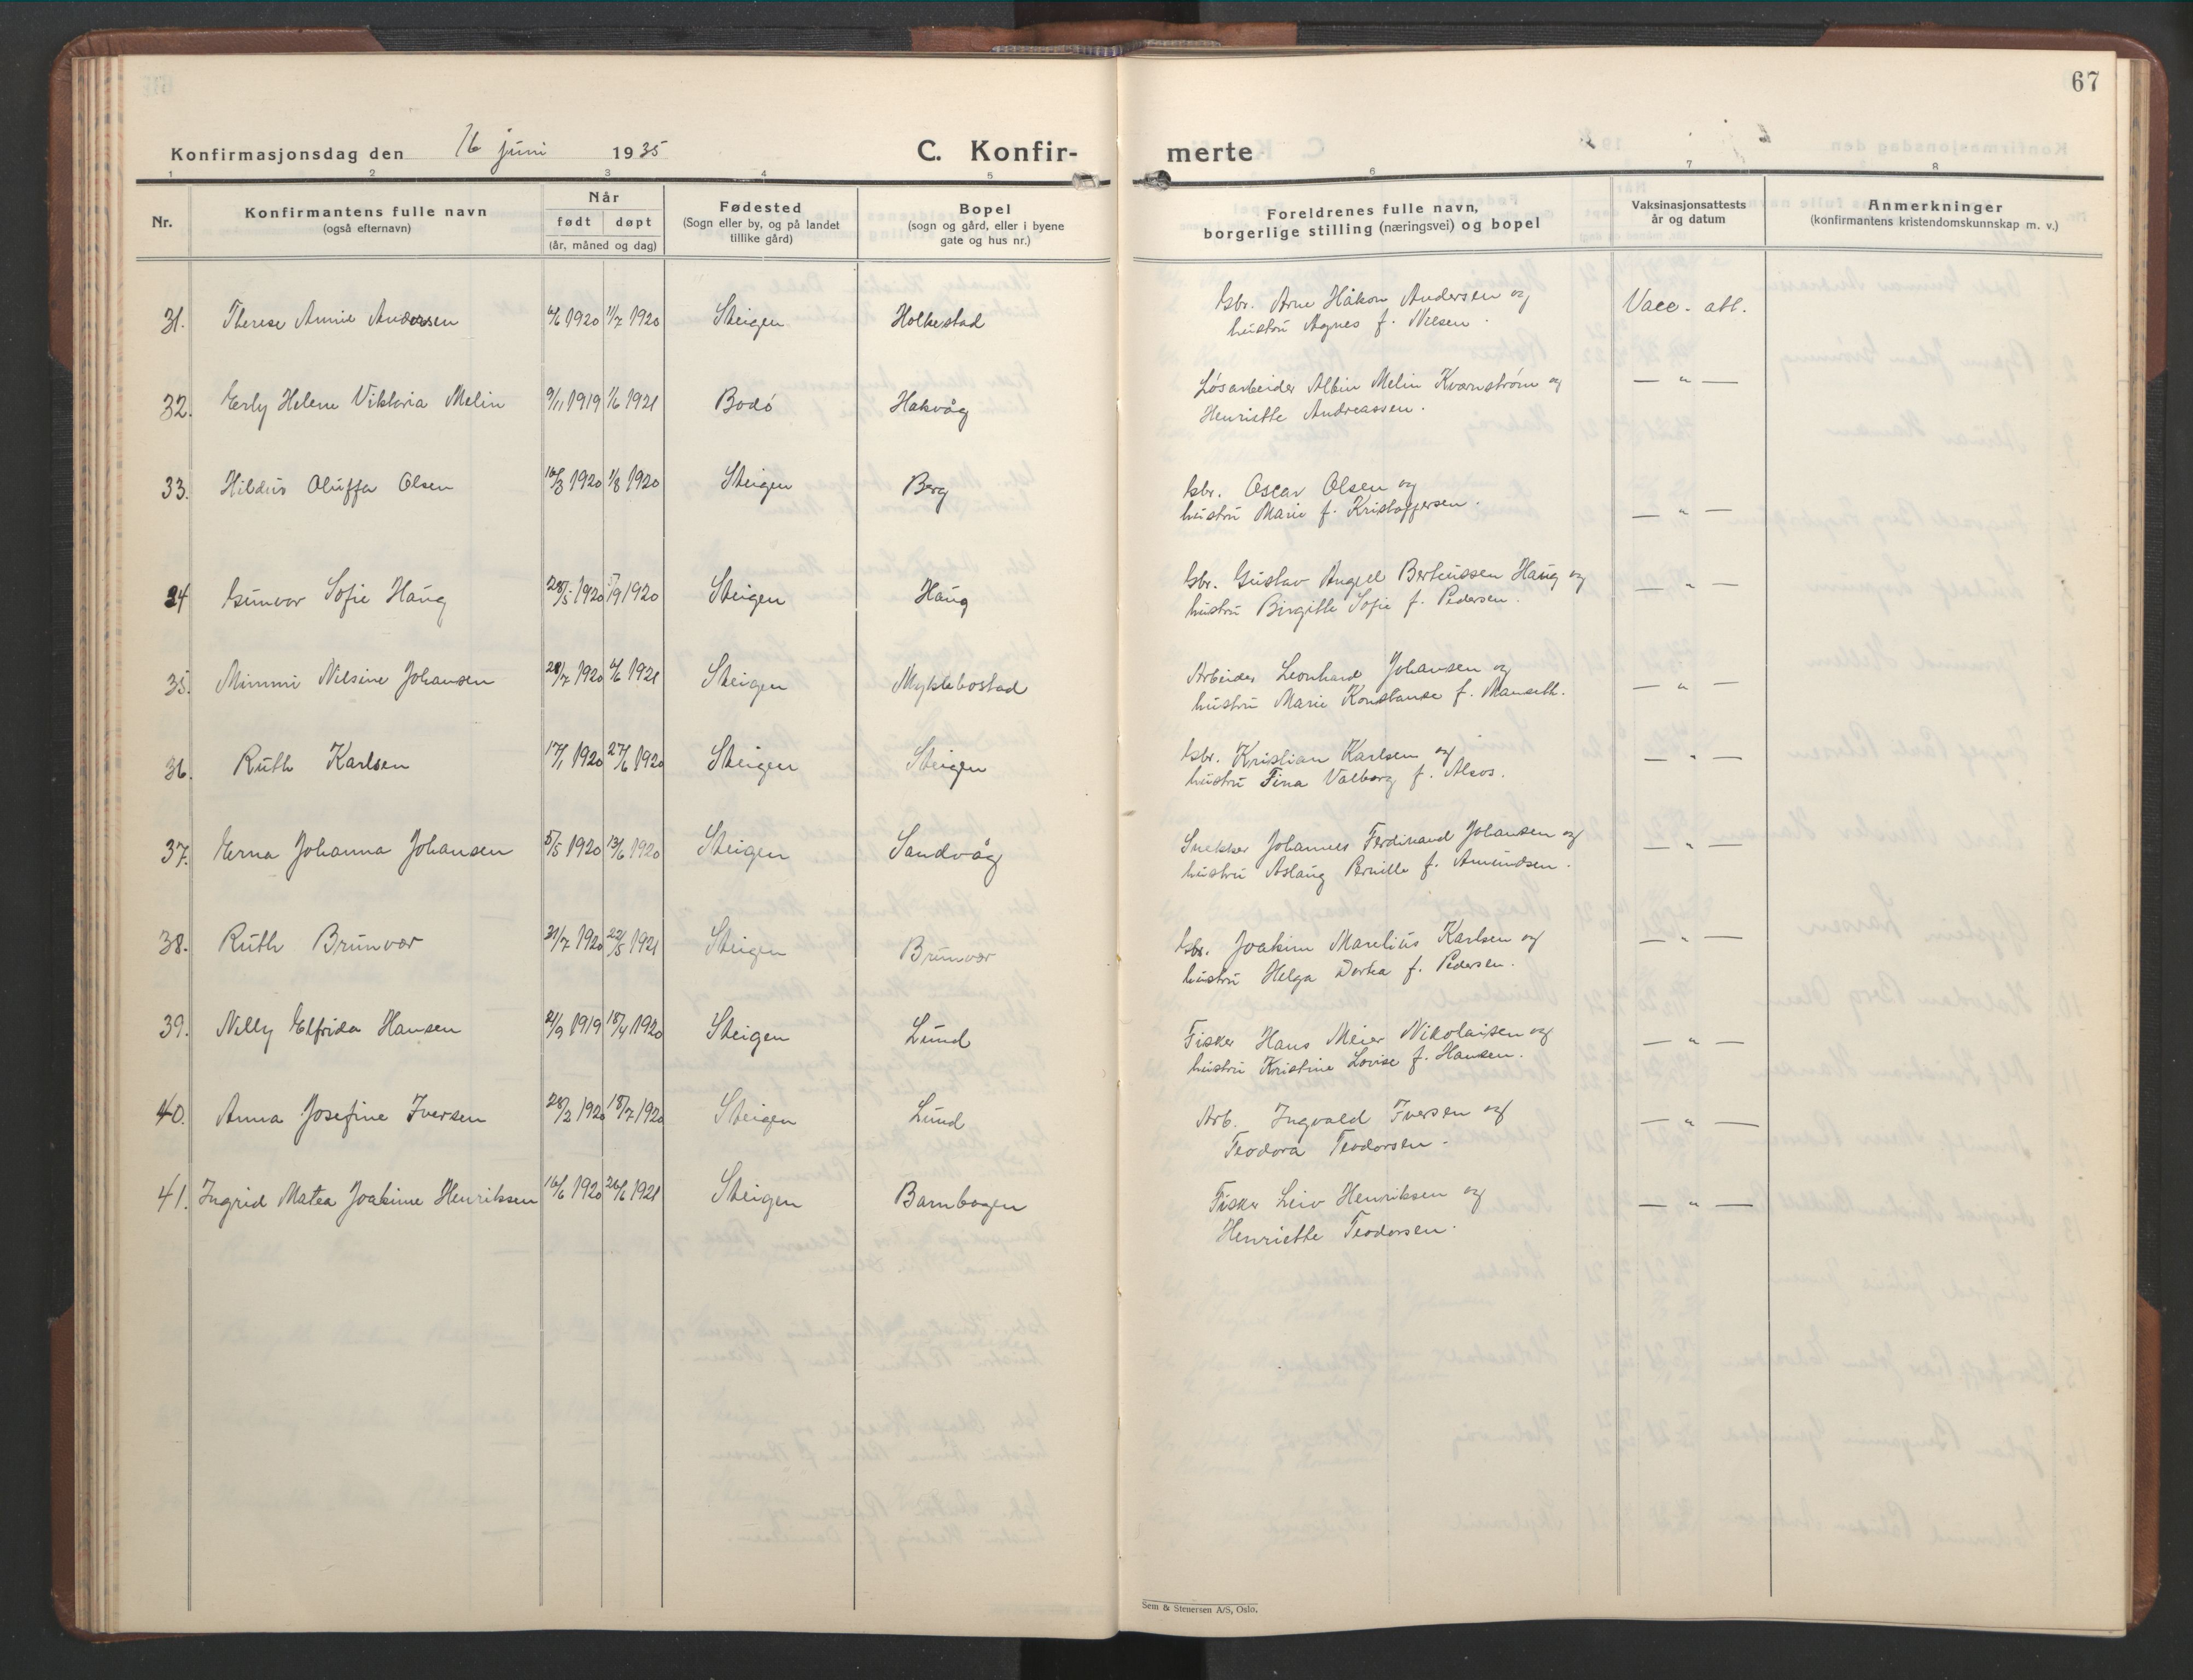 67
Konfirmasjonsdag den 16 juni 1935
C. Konfir-
merte
1 2 3 4 5 6 7 8
Nr.
Konfirmantens fulle navn
(også efternavn)
Når
født døpt
(år, måned og dag)
Fødested
(Sogn eller by, og på landet
tillike gård)
Bopel
(sogn og gård, eller i byene
gate og hus nr.)
Foreldrenes fulle navn,
borgerlige stilling (næringsvei) og bopel
Vaksinasjonsattests
år og datum
Anmerkninger
(konfirmantens kristendomskunnskap m. v.)
31. Therese Annie Andersen 6/6 1920 11/7 1920 Steigen Holkestad
Gbr. Arne Håkon Andersen og
hustru Agnes f. Nilsen.
Vacc. att.
32. Erly Helene Viktoria Melin 9/11 1919 1/6 1921 Bodø Hakvåg
Løsarbeider Albin Melin Kvarnstrøm og
Henriette Andreassen.
— " —
33. Hildus Oluffa Olsen 16/3 1920 1/8 1920 Steigen Berg
Gbr. Oscar Olsen og
hustru Marie f. Kristoffersen.
— " —
34 Gunvor Sofie Haug 28/5 1920 /9 1920 Steigen Haug
Gbr. Gustav Angell Berteussen Haug og
hustru Birgitte Sofie f. Pedersen.
— " —
35. Mimmi Nilsine Johansen 28/7 1920 6/6 1921 Steigen Myklebostad
Arbeider Leonhard Johansen og
hustru Marie Konstanse f. Manseth.
— " —
36. Ruth Karlsen 17/1 1920 27/6 1920 Steigen Steigen
Gbr. Kristian Karlsen og
hustru Fina Valborg f. Alsos.
— " —
37. Erna Johanna Johansen 5/5 1920 13/6 1920 Steigen Sandvåg
Snekker Johannes Ferdinand Johansen og
hustru Aslaug Pernille f. Amundsen.
— " —
38. Ruth Brunvær 31/7 1920 22/5 1921 Steigen Brunvær
Gbr. Joakim Marelius Karlsen og
hustru Helga Dortea f. Pedersen.
— " —
39. Nelly Elfrida Hansen 21/9 1919 18/4 1920 Steigen Lund
Fisker Hans Meier Nikolaisen og
hustru Kristine Lovise f. Hansen.
— " —
40. Anna Josefine Iversen 28/2 1920 18/7 1920 Steigen Lund
Arb. Ingvald Iversen og
Teodora Teodorsen.
— " —
41. Ingrid Matea Joakime Henriksen 16/6 1920 26/6 1921 Steigen Barnbogen
Fisker Leiv Henriksen og
Henriette Teodorsen.
— " —
Sem & Stenersen A/S, Oslo.